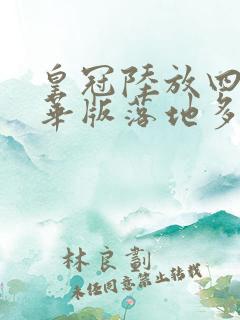 皇冠陸放四
華版落地多
林良劃
未任同意禁止转载